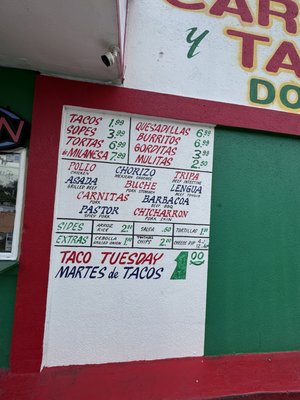 CAR
y TA
DO
TACOS 1.99
SOPES 3.99
TORTAS 6.99
MILANESA 7.99
QUESADILLAS 6.99
BURRITOS 6.99
GORDITAS 3.99
MULITAS 2.50
POLLO CHORIZO TRIPA
CHICKEN MEXICAN SAUSAGE
ASADA BUCHE LENGUA
GRILLED BEEF PORK STOMACH
CARNITAS BARBACOA
PORK BEEF BBQ
PASTOR CHICHARRON
SPICY PORK PORK SKIN
SIDES ARROZ RICE 2.00 SALSA .50 TORTILLAS 1.00
EXTRAS CEBOLLA GRILLED ONION 1.00 CHIPS 2.00 CHEESE DIP
TACO TUESDAY
MARTES de TACOS 1.00